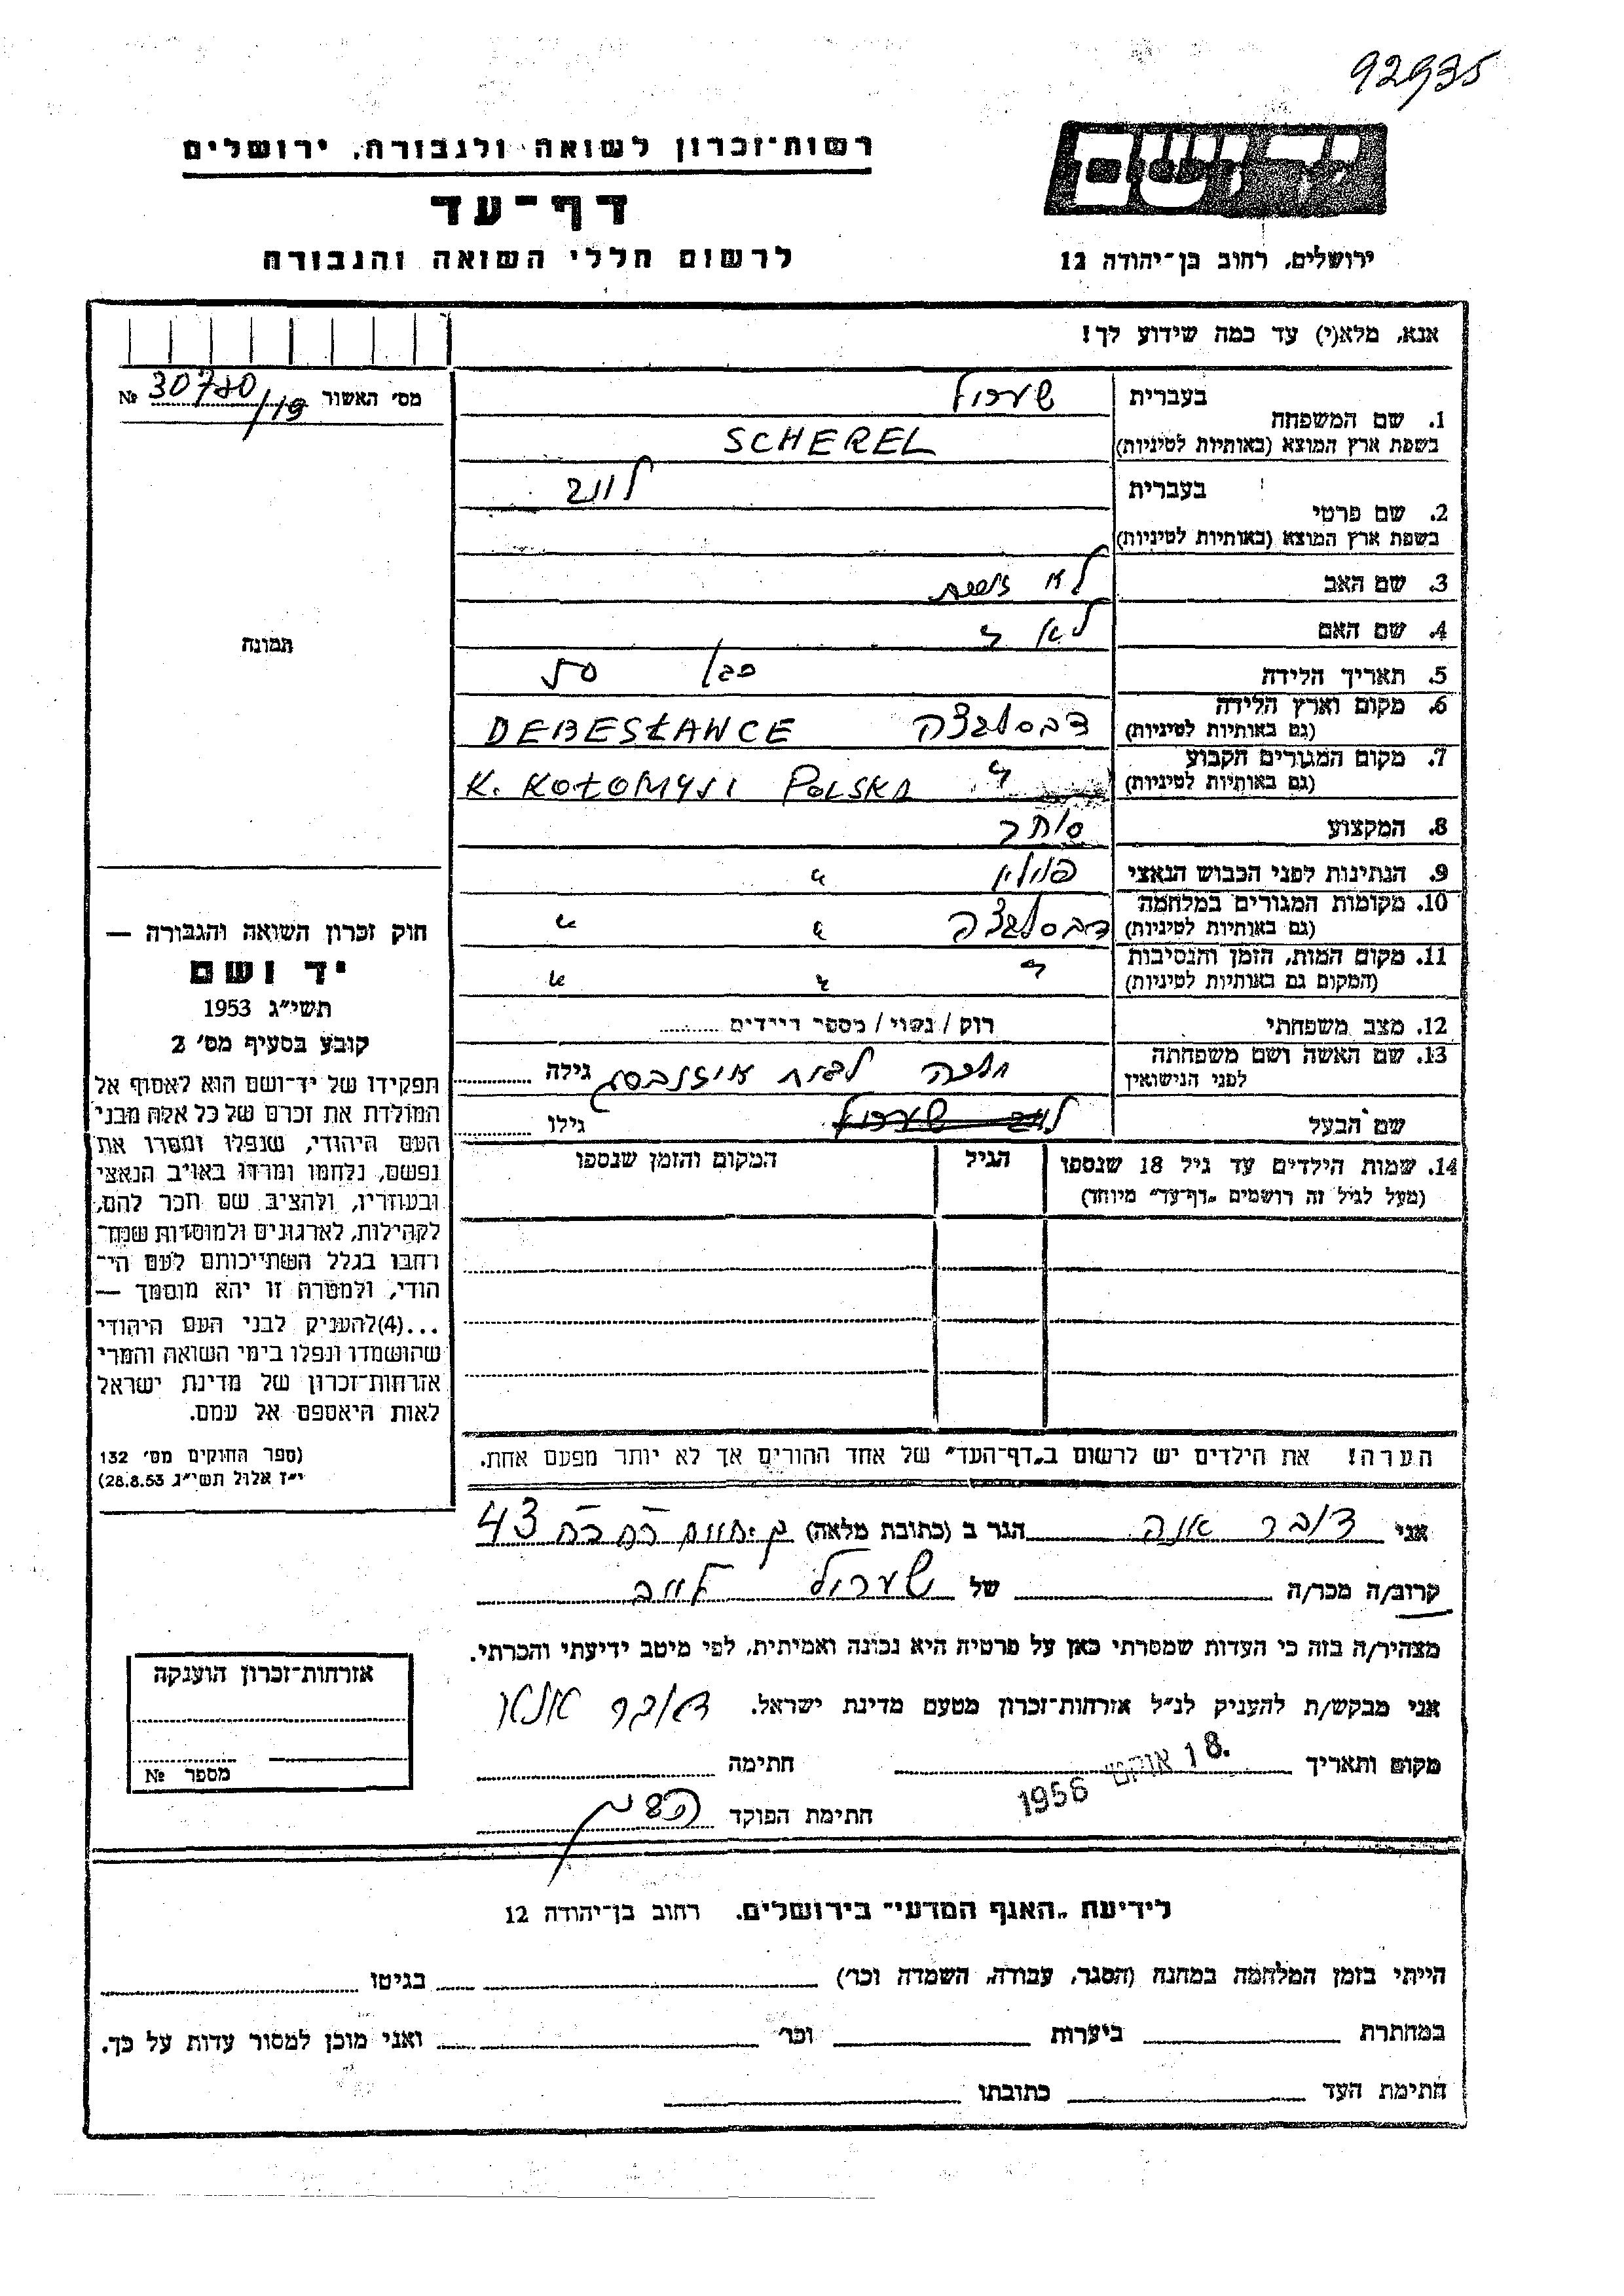 92935
רשות־זכרון לשואה ולגבורה, ירושלים
יד ושם
דף־עד
לרשום חללי השואה והגבורה
ירושלים, רחוב בן־יהודה 12
אנא, מלא(י) עד כמה שידוע לך!
מס׳ האשור 30780/19 №
בעברית
1. שם המשפחה
בשפת ארץ המוצא (באותיות לטיניות) SCHEREL
בעברית
2. שם פרטי
בשפת ארץ המוצא (באותיות לטיניות)
3. שם האב לא
4. שם האם לא
תמונה
5. תאריך הלידה בן
6. מקום וארץ הלידה
(גם באותיות לטיניות) DEBESŁAWCE
7. מקום המגורים הקבוע
(גם באותיות לטיניות) K. KOŁOMYJI POLSKA
8. המקצוע סוחר
9. הנתינות לפני הכבוש הנאצי פולין "
10. מקומות המגורים במלחמה
(גם באותיות לטיניות) " "
11. מקום המות, הזמן והנסיבות
(המקום גם באותיות לטיניות) " " "
12. מצב משפחתי רוק / נשוי / מספר הילדים
13. שם האשה ושם משפחתה
לפני הנישואין לבית גילה
שם הבעל גילו
14. שמות הילדים עד גיל 18 שנספו הגיל המקום והזמן שנספו
(מעל לגיל זה רושמים „דף־עד״ מיוחד)
חוק זכרון השואה והגבורה —
יד ושם
תשי״ג 1953
קובע בסעיף מס׳ 2
תפקידו של יד־ושם הוא לאסוף אל
המולדת את זכרם של כל אלה מבני
העם היהודי, שנפלו ומסרו את
נפשם, נלחמו ומרדו באויב הנאצי
ובעוזריו, ולהציב שם וזכר להם,
לקהילות, לארגונים ולמוסדות שנח־
רבו בגלל השתייכותם לעם הי־
הודי, ולמטרה זו יהא מוסמך —
...(4)להעניק לבני העם היהודי
שהושמדו ונפלו בימי השואה והמרי
אזרחות־זכרון של מדינת ישראל
לאות היאספם אל עמם.
(ספר החוקים מס׳ 132
י״ז אלול תשי״ג 28.8.53)
הערה! את הילדים יש לרשום ב„דף־העד״ של אחד ההורים אך לא יותר מפעם אחת.
אני אנה הגר ב (כתובת מלאה) 43
קרוב/ה מכר/ה של לייב
מצהיר/ה בזה כי העדות שמסרתי כאן על פרטיה היא נכונה ואמיתית, לפי מיטב ידיעתי והכרתי.
אני מבקש/ת להעניק לנ״ל אזרחות־זכרון מטעם מדינת ישראל.
מקום ותאריך 18. 1956 חתימה
חתימת הפוקד
אזרחות־זכרון הוענקה
מספר №
לידיעת „האגף המדעי״ בירושלים, רחוב בן־יהודה 12
הייתי בזמן המלחמה במחנה (הסגר, עבודה, השמדה וכו׳) בגיטו
במחתרת ביערות וכו׳ ואני מוכן למסור עדות על כך.
חתימת העד כתובתו